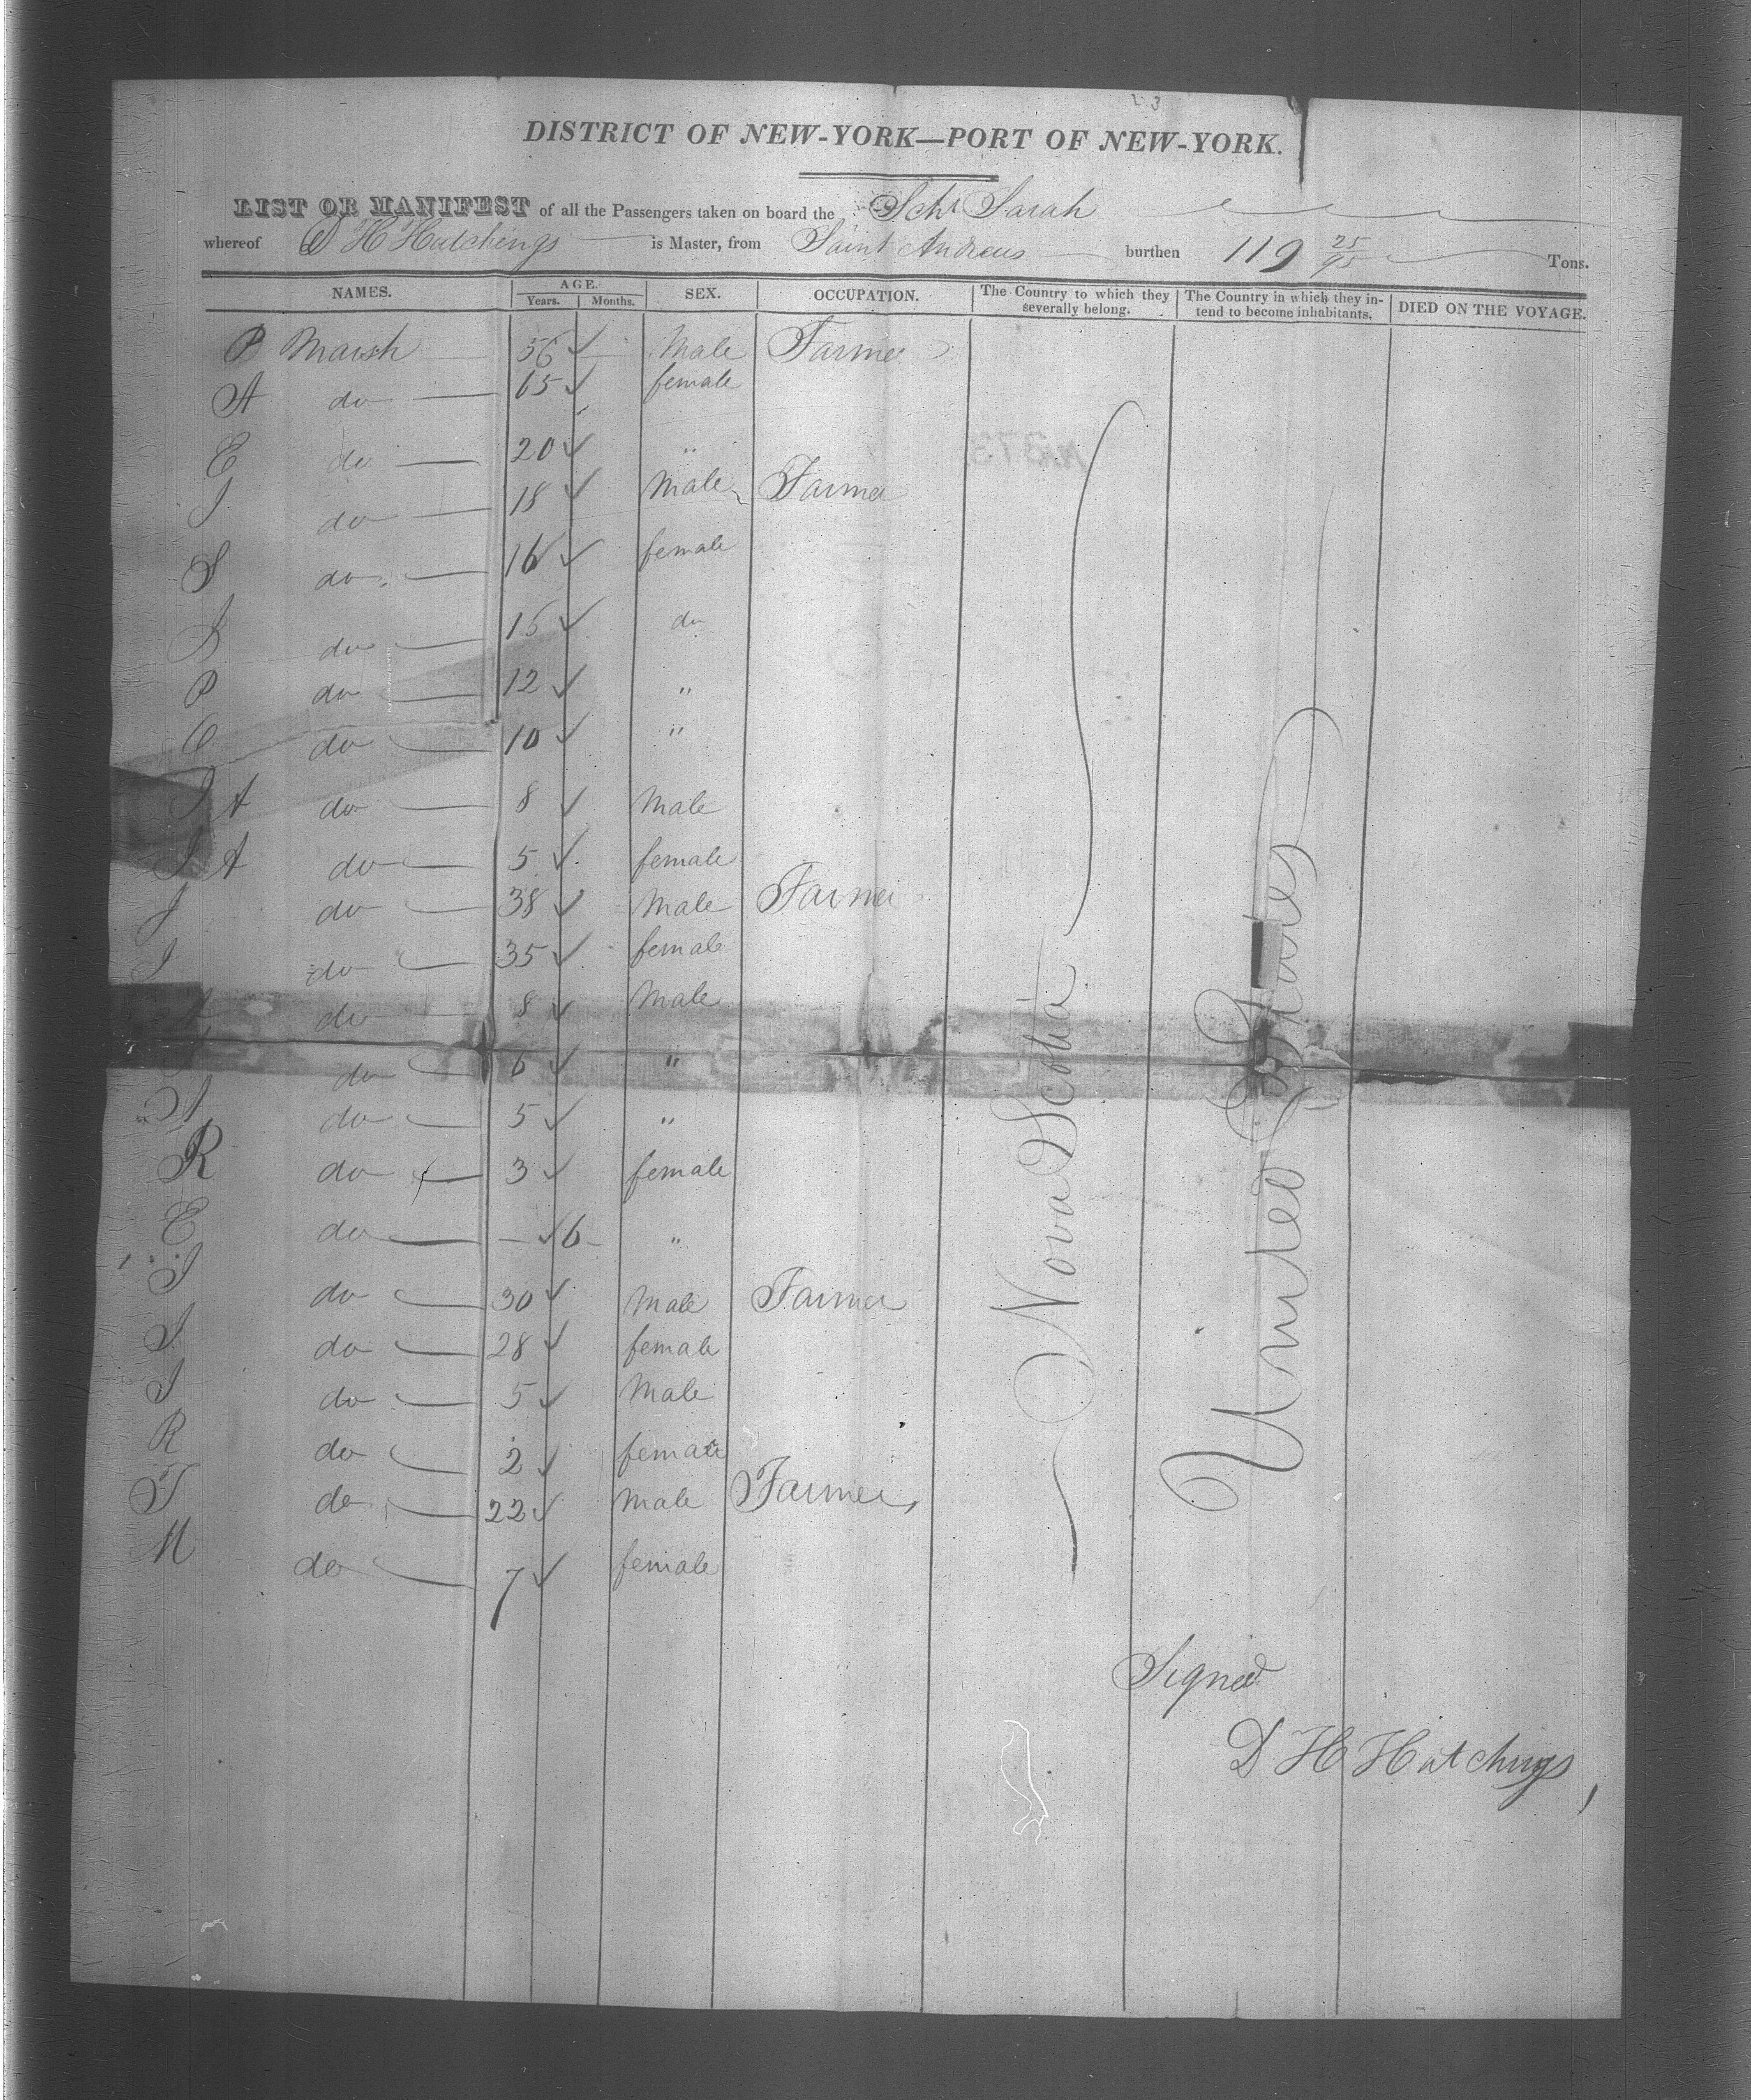 DISTRICT OF NEW-YORK—PORT OF NEW-YORK.
LIST OR MANIFEST of all the Passengers taken on board the Schr Sarah
whereof D H Hutchings is Master, from Saint Andrews burthen 119 25/95 Tons.
NAMES. AGE. Years. Months. SEX. OCCUPATION. The Country to which they severally belong. The Country in which they intend to become inhabitants. DIED ON THE VOYAGE.
P Marsh 56 Male Farmer
A do 65 female
E do 20 "
J do 18 Male Farmer
S do 16 female
do 15 do
P do 12 "
C do 10 "
J A do 8 Male
J A do 5 female
J do 38 Male Farmer
J do 35 female
do 8 Male
do 6 "
do 5 "
R do 3 female
E do — 6 "
J do 30 Male Farmer
S do 28 female
J do 5 Male
R do 2 female
T do 22 Male Farmer
M do 7 female
Nova Scotia
United States
Signed
D H Hutchings